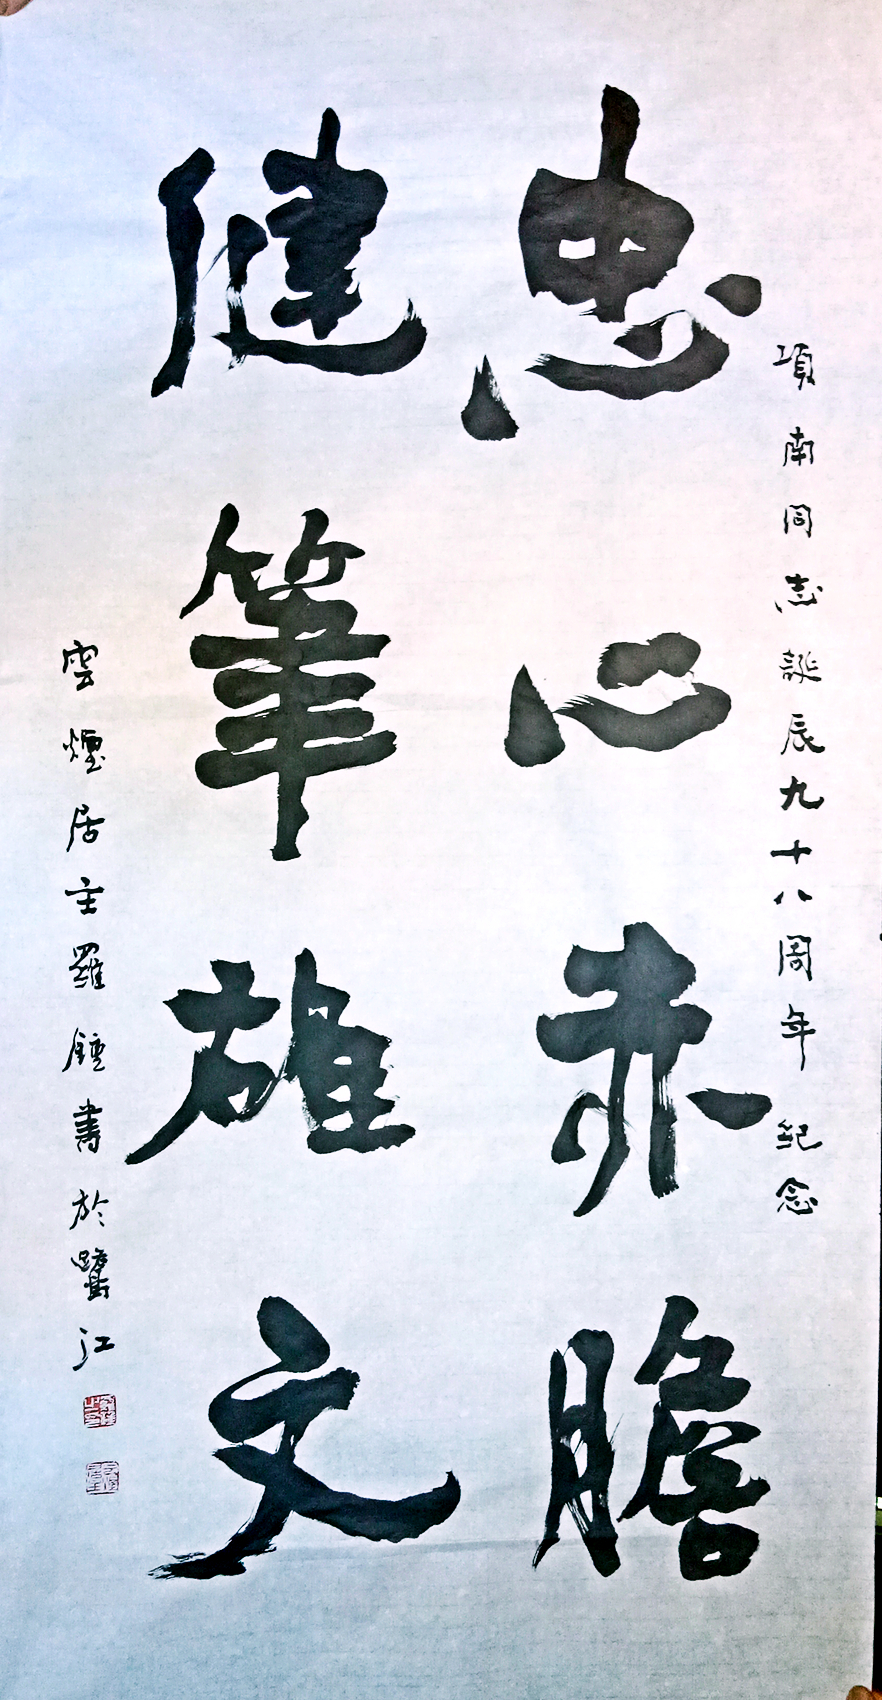 項南同志誕辰九十八周年紀念
忠心赤膽
健筆雄文
雲煙居主羅鍾書於鷺江